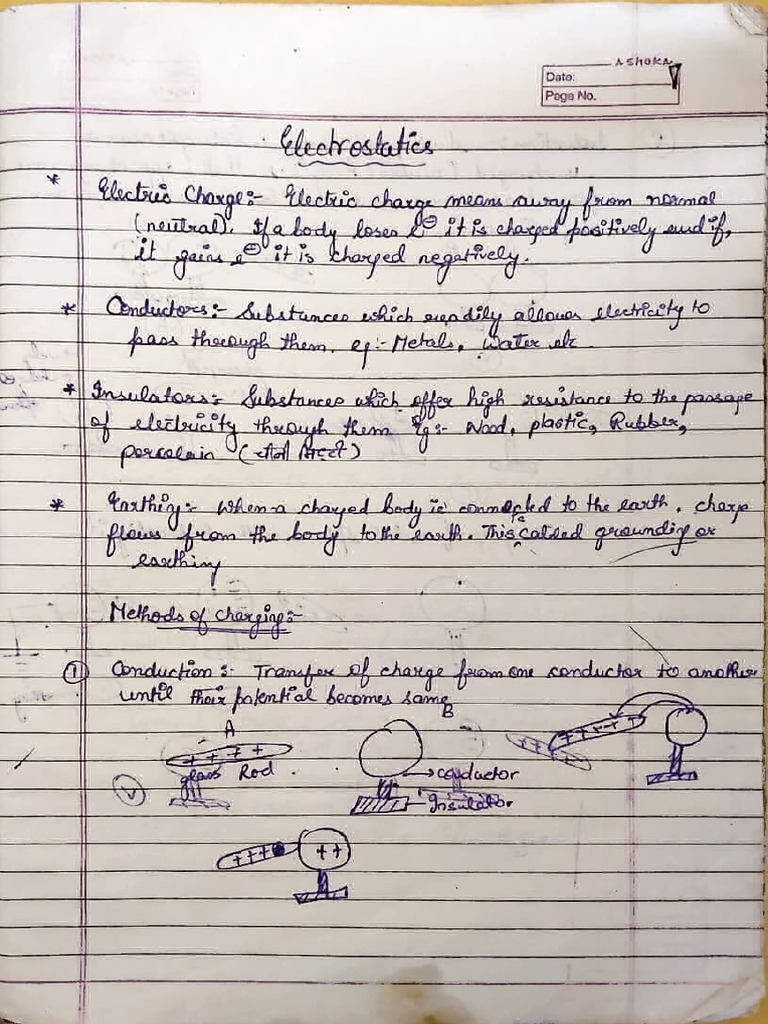 ASHOKA
Date:
Page No.
Electrostatics
* Electric Charge:- Electric charge means away from normal
(neutral). If a body loses e⊖ it is charged positively and if,
it gains e⊖ it is charged negatively.
* Conductors:- Substances which readily allows electricity to
pass through them. eg:- Metals, water etc
* Insulators:- Substances which offer high resistance to the passage
of electricity through them Eg:- Wood, plastic, Rubber,
porcelain (चीनी मिट्टी)
* Earthing:- When a charged body is connected to the earth, charge
flows from the body to the earth. This is called grounding or
earthing
Methods of charging:-
① Conduction:- Transfer of charge from one conductor to another
until their potential becomes same
A
B
+ + + +
glass Rod
conductor
Insulator
+ + + +
+ +